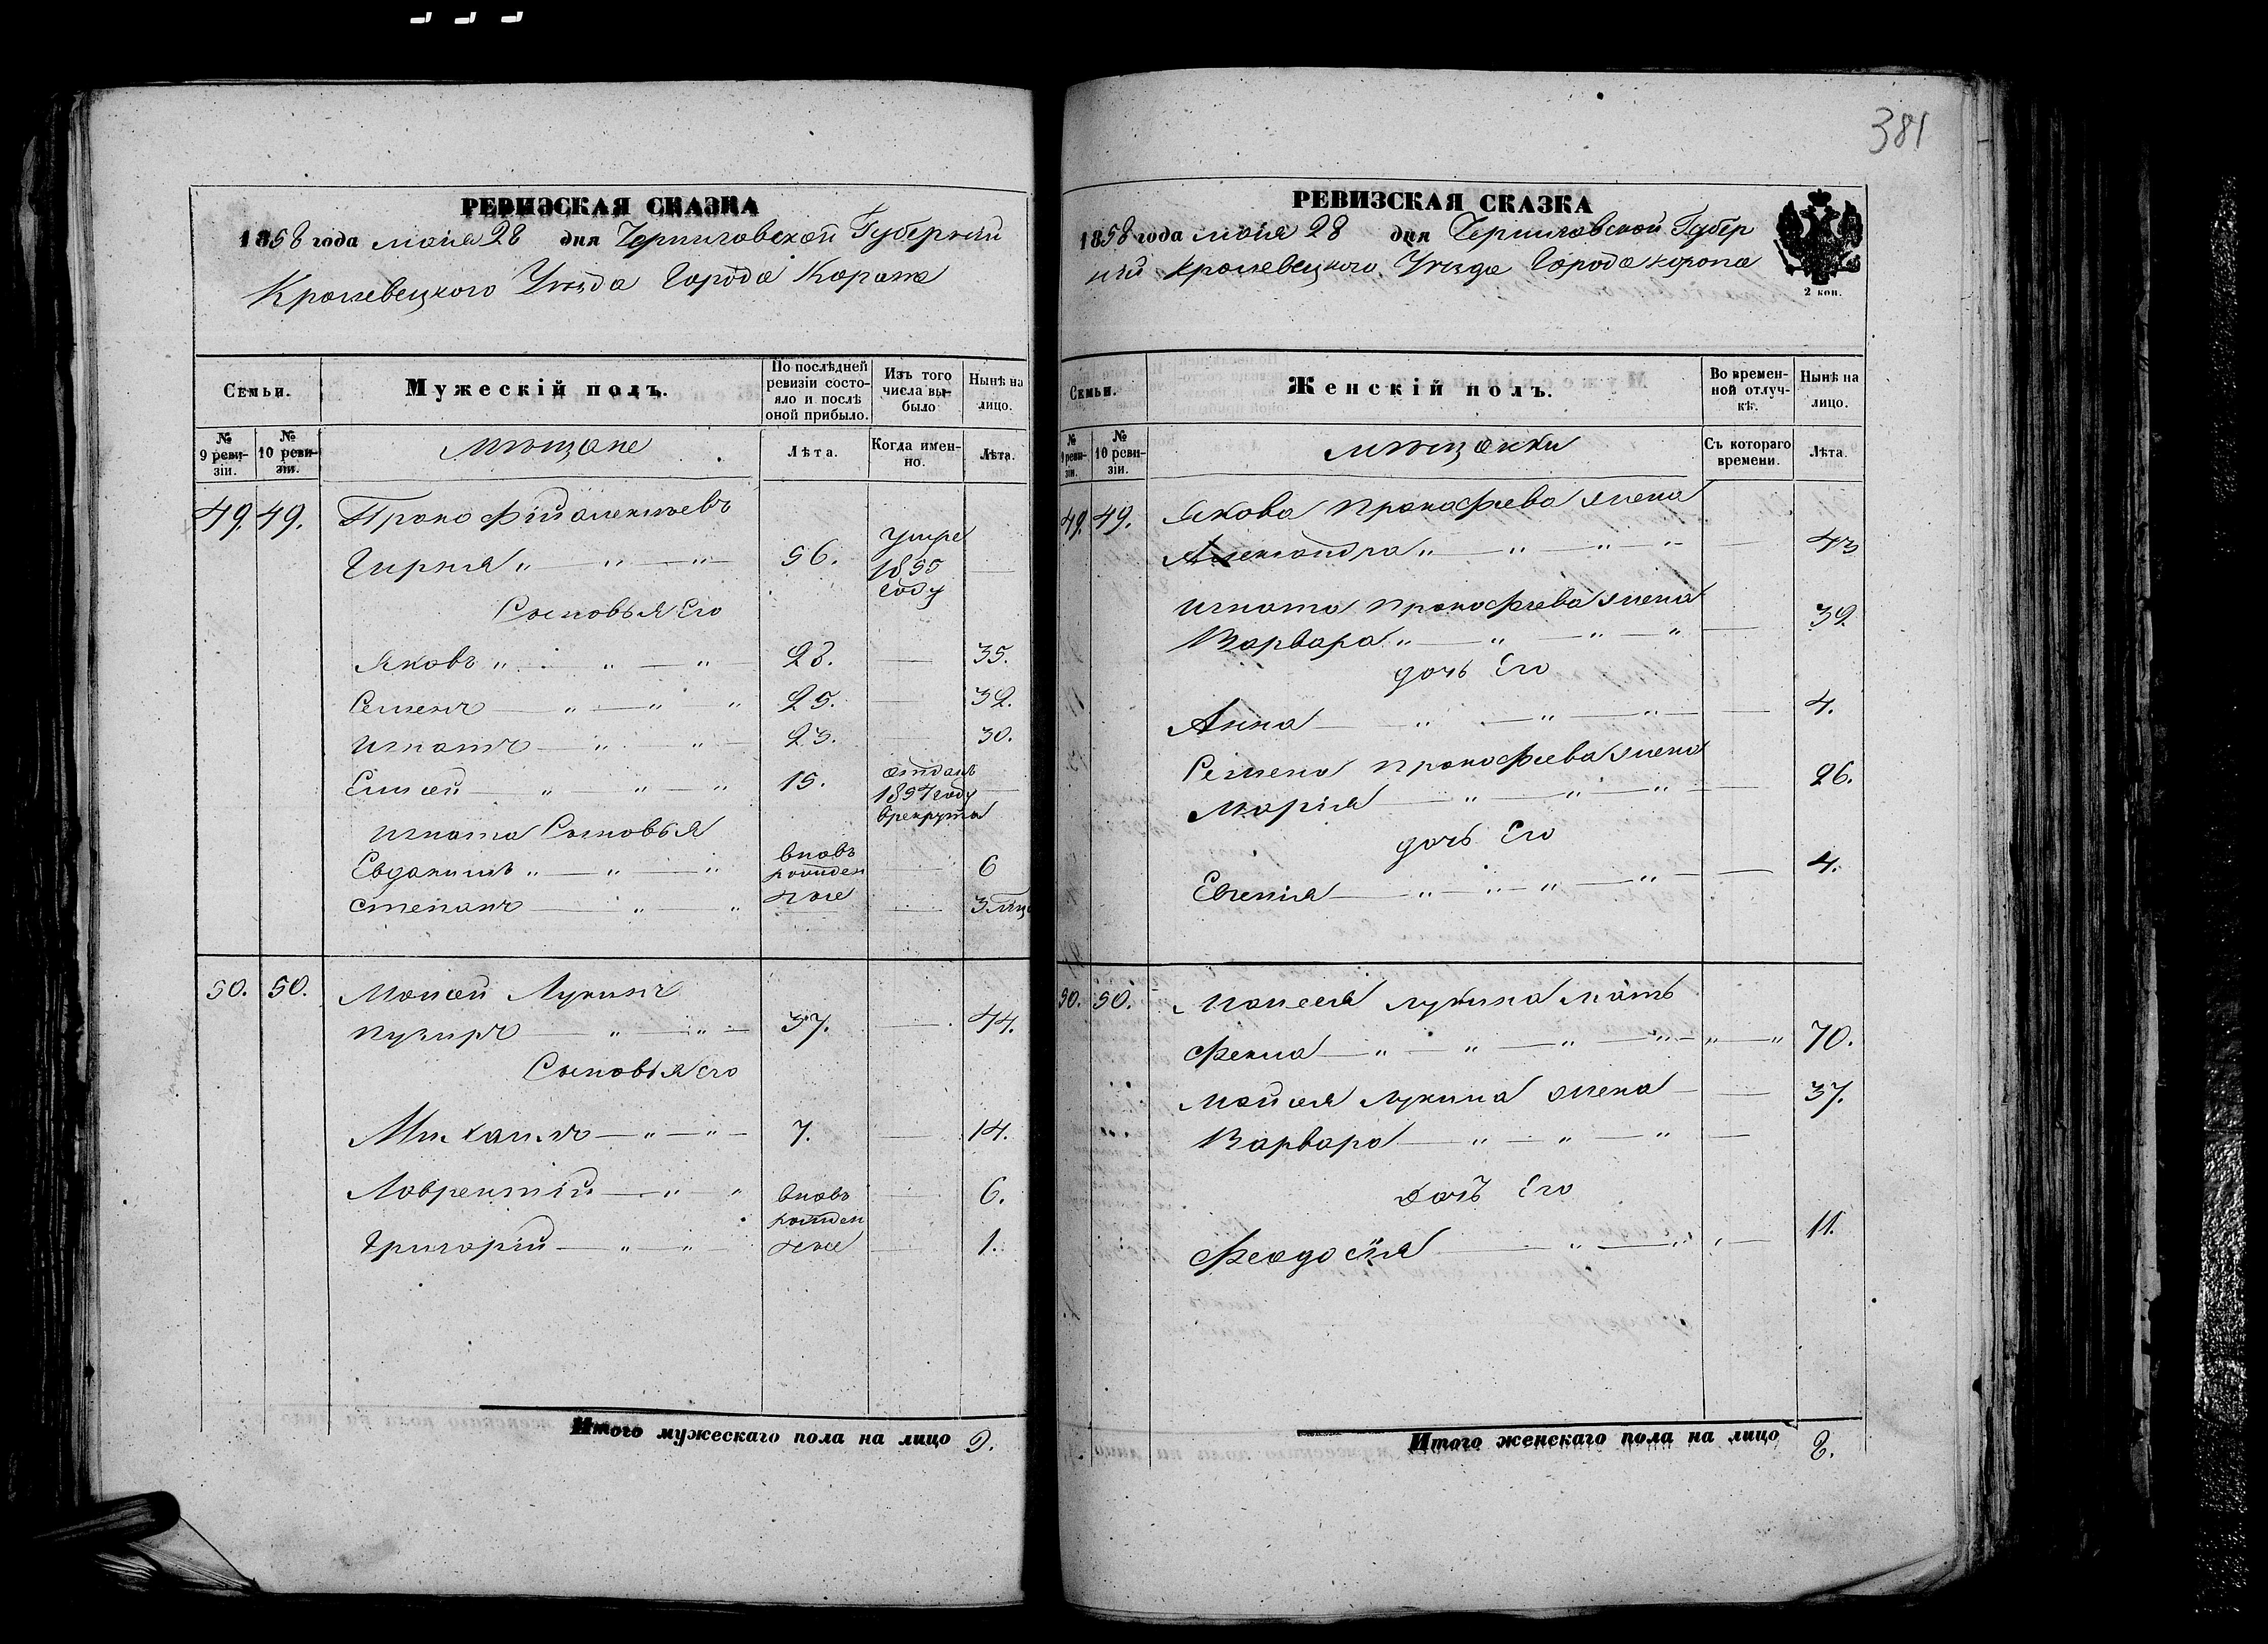 381
РЕВИЗСКАЯ СКАЗКА
1858 года мая 28 дня Черниговской Губернии
Кролевецкого Уезда Города Коропа
Семьи.
Мужескій полъ.
По послѣдней ревизіи состояло и послѣ оной прибыло.
Изъ того числа выбыло
Нынѣ на лицо.
№ 9 ревизіи.
№ 10 ревизіи.
мѣщане
Лѣта.
Когда именно.
Лѣта.
49. 49. Прокофій Алексѣевъ
56. умре 1855 году
Сыновья Его
Яковъ 28. 35.
Семенъ 25. 32.
Игнатъ 23. 30.
Елисей 15. отданъ 1857 году в рекруты
Игната Сыновья
Евдокимъ вновь рожден 6
Степанъ ные 3 мца
50. 50. Моисей Лукинъ
Пузиръ 37. 44.
Сыновья его
Михаилъ 7. 14.
Лаврентій вновь 6.
рожден
Григорій ные 1.
Итого мужескаго пола на лицо 9.
РЕВИЗСКАЯ СКАЗКА
1858 года мая 28 дня Черниговской Губер
нии Кролевецкого Уезда Города Коропа
2 коп.
Семьи.
Женскій полъ.
Во временной отлучкѣ.
Нынѣ на лицо.
№ 9 ревизіи.
№ 10 ревизіи.
мѣщанки
Съ котораго времени.
Лѣта.
49. 49. Якова Прокофиева жена
Александра 43
Игната Прокофиева жена
Варвара 32
дочь Его
Анна 4.
Семена Прокофиева жена
Марія 26.
дочь Его
Евгенія 4.
50. 50. Моисея Лукина мать
Фекла 70.
Мойсея Лукина жена 37.
Варвара
дочь Его
Феодосія 11.
Итого женскаго пола на лицо 8.